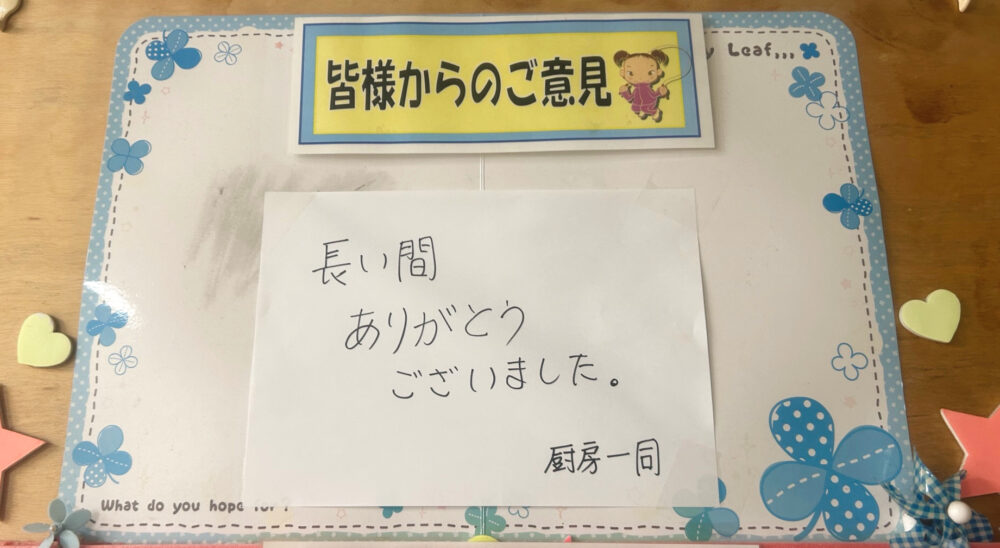 皆様からのご意見
y Leaf,,,
長い間
ありがとう
ございました。
厨房一同
What do you hope for?